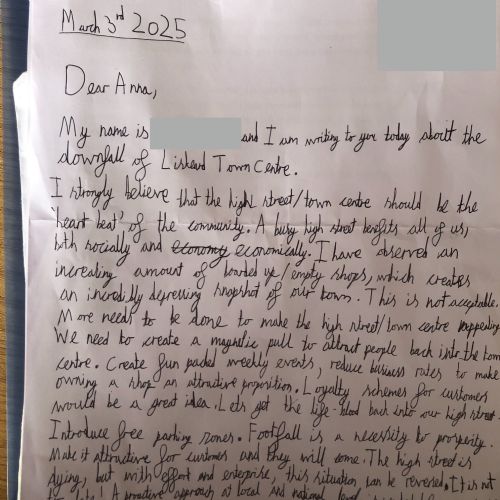 March 3rd 2025
Dear Anna,
My name is and I am writing to you today about the
downfall of Liskeard Town Centre.
I strongly believe that the high street/town centre should be the
'heart beat' of the community. A busy high street benefits all of us,
both socially and economy economically. I have observed an
increasing amount of boarded up/empty shops, which creates
an incredibly depressing snapshot of our town. This is not acceptable.
More needs to be done to make the high street/town centre appealing
We need to create a magnetic pull to attract people back into the town
centre. Create fun packed weekly events, reduce business rates to make
owning a shop an attractive proposition. Loyalty schemes for customers
would be a great idea. Lets get the life-blood back into our high street.
Introduce free parking zones. Footfall is a necessity to prosperity.
Make it attractive for customers and they will come. The high street is
dying, but with effort and enterprise, this situation can be reversed. It is not
too late! A proactive approach at local and national level